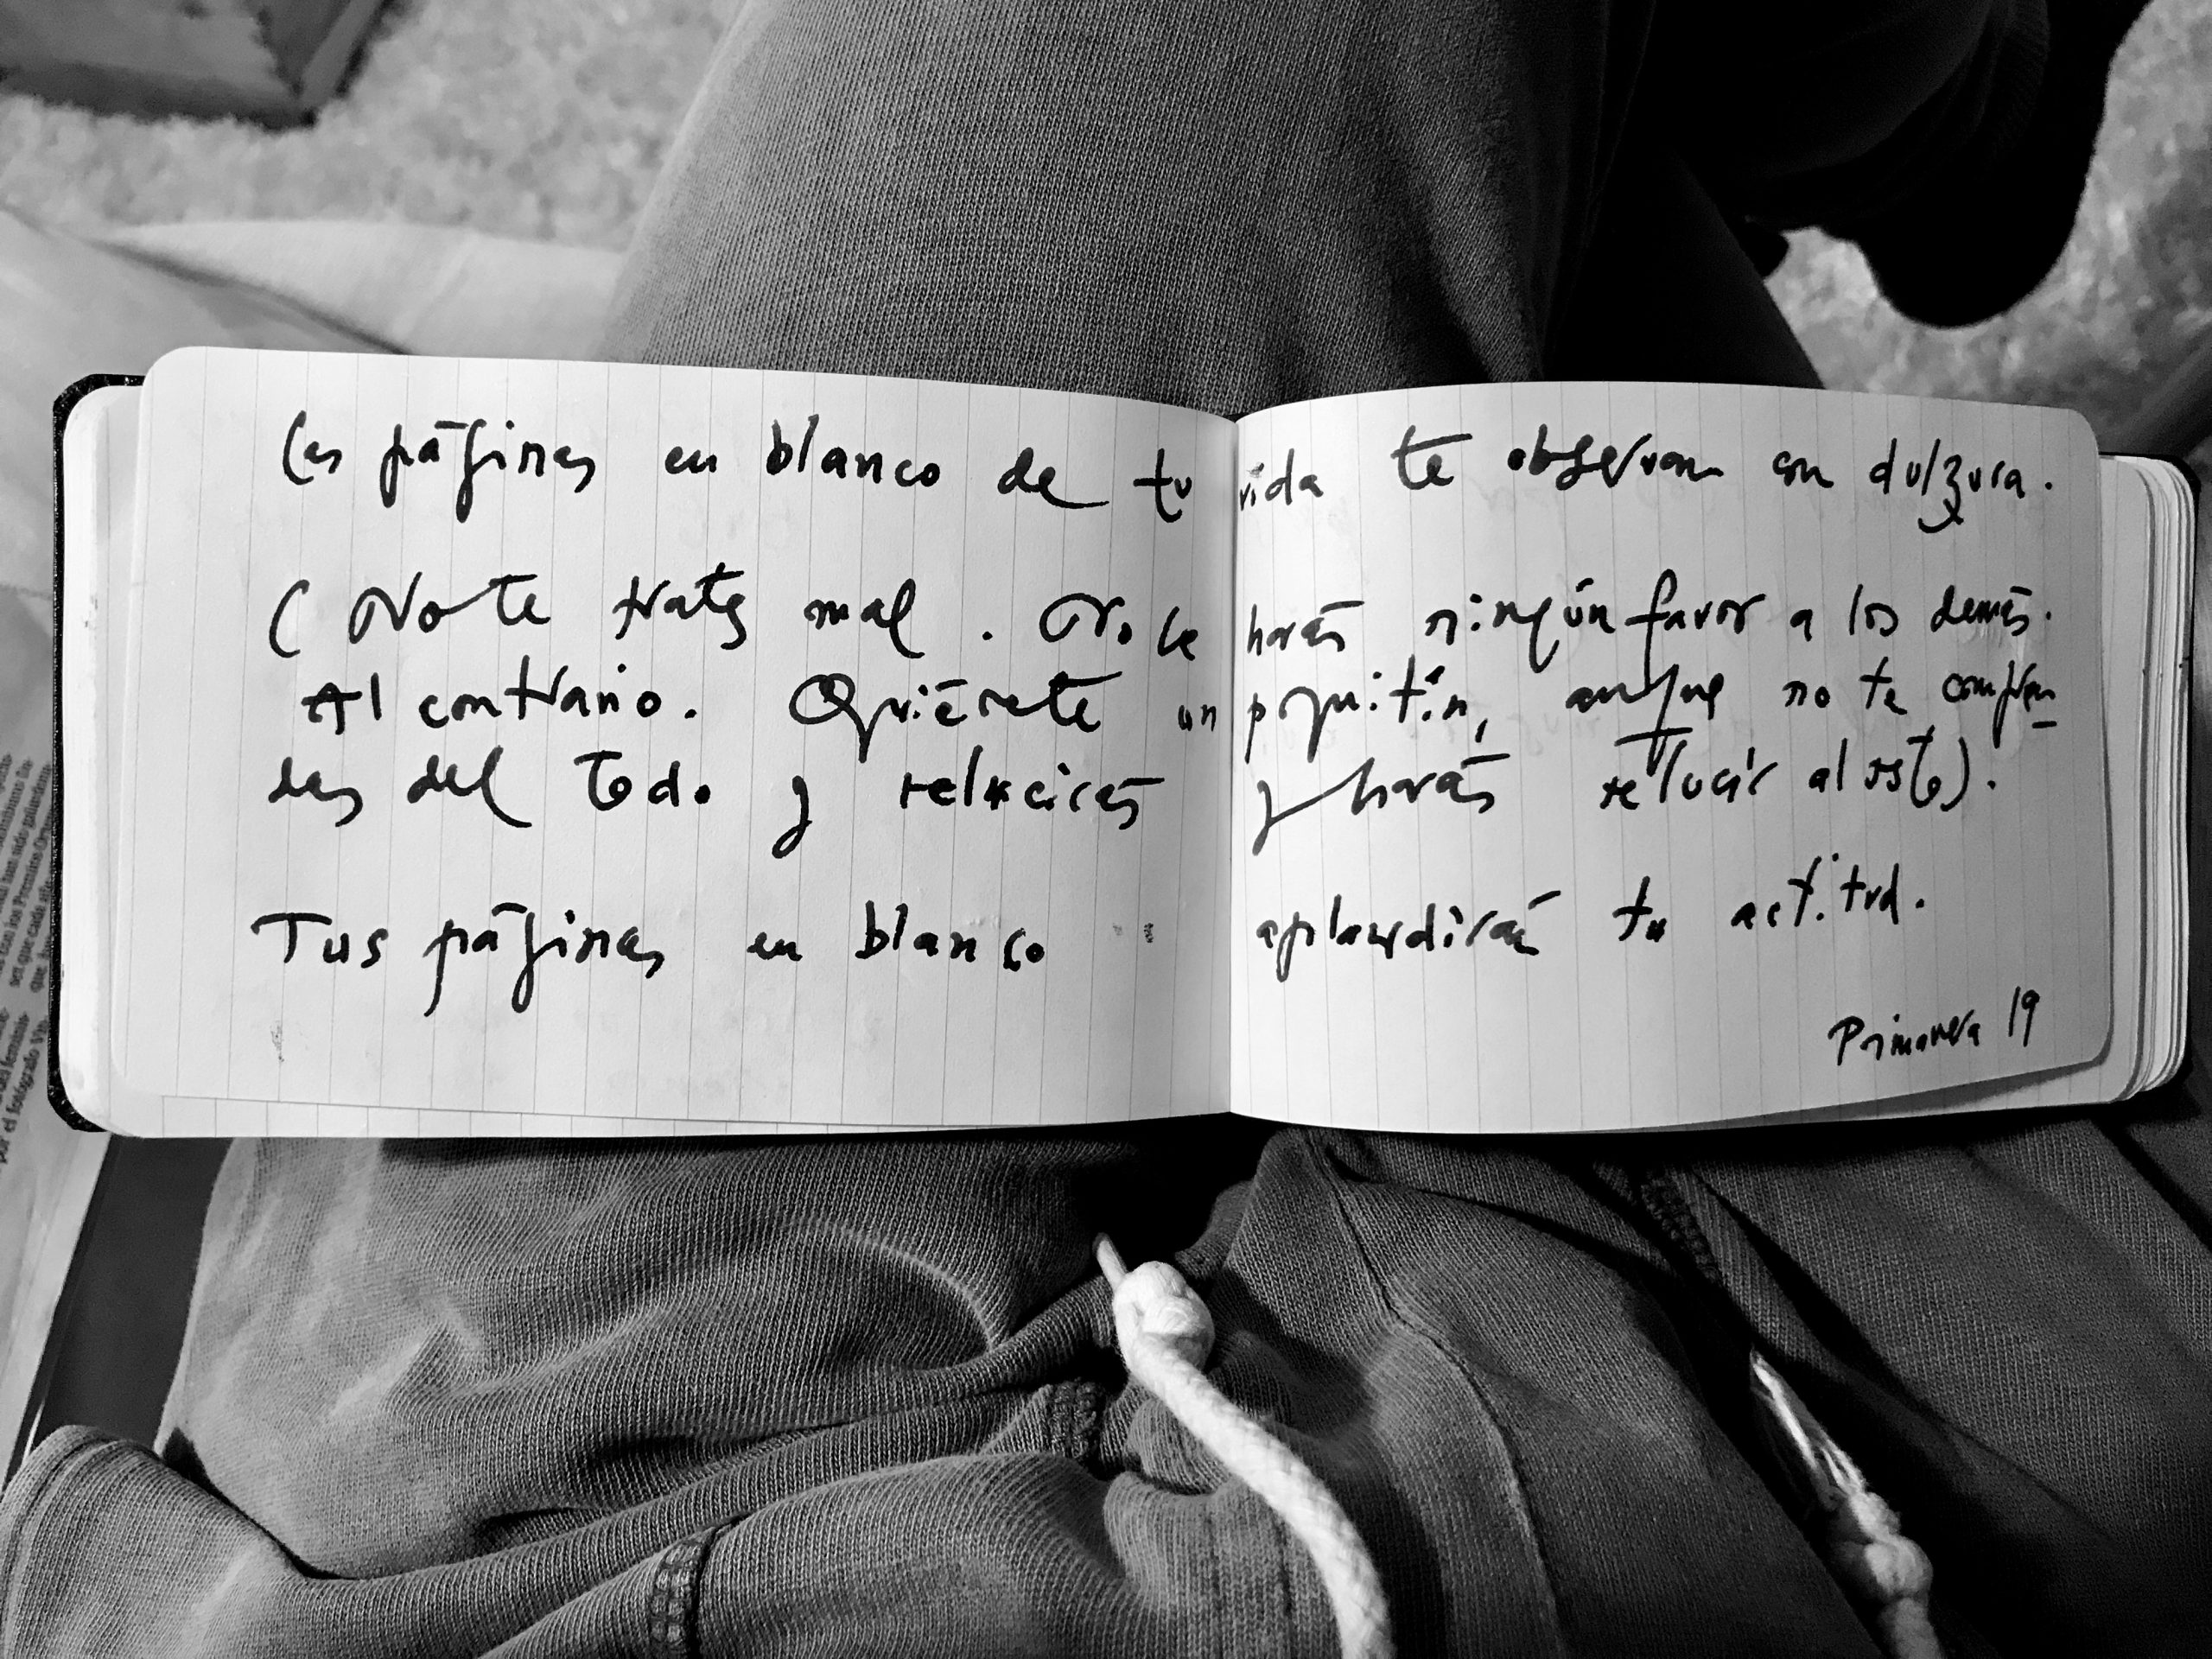 Las páginas en blanco de tu vida te observan con dulzura.
( No te trates mal. No le harás ningún favor a los demás.
Al contrario. Quiérete un poquitín, aunque no te compren-
das del todo y relucirás y harás relucir al resto).
Tus páginas en blanco aplaudirán tu actitud.
Primavera 19